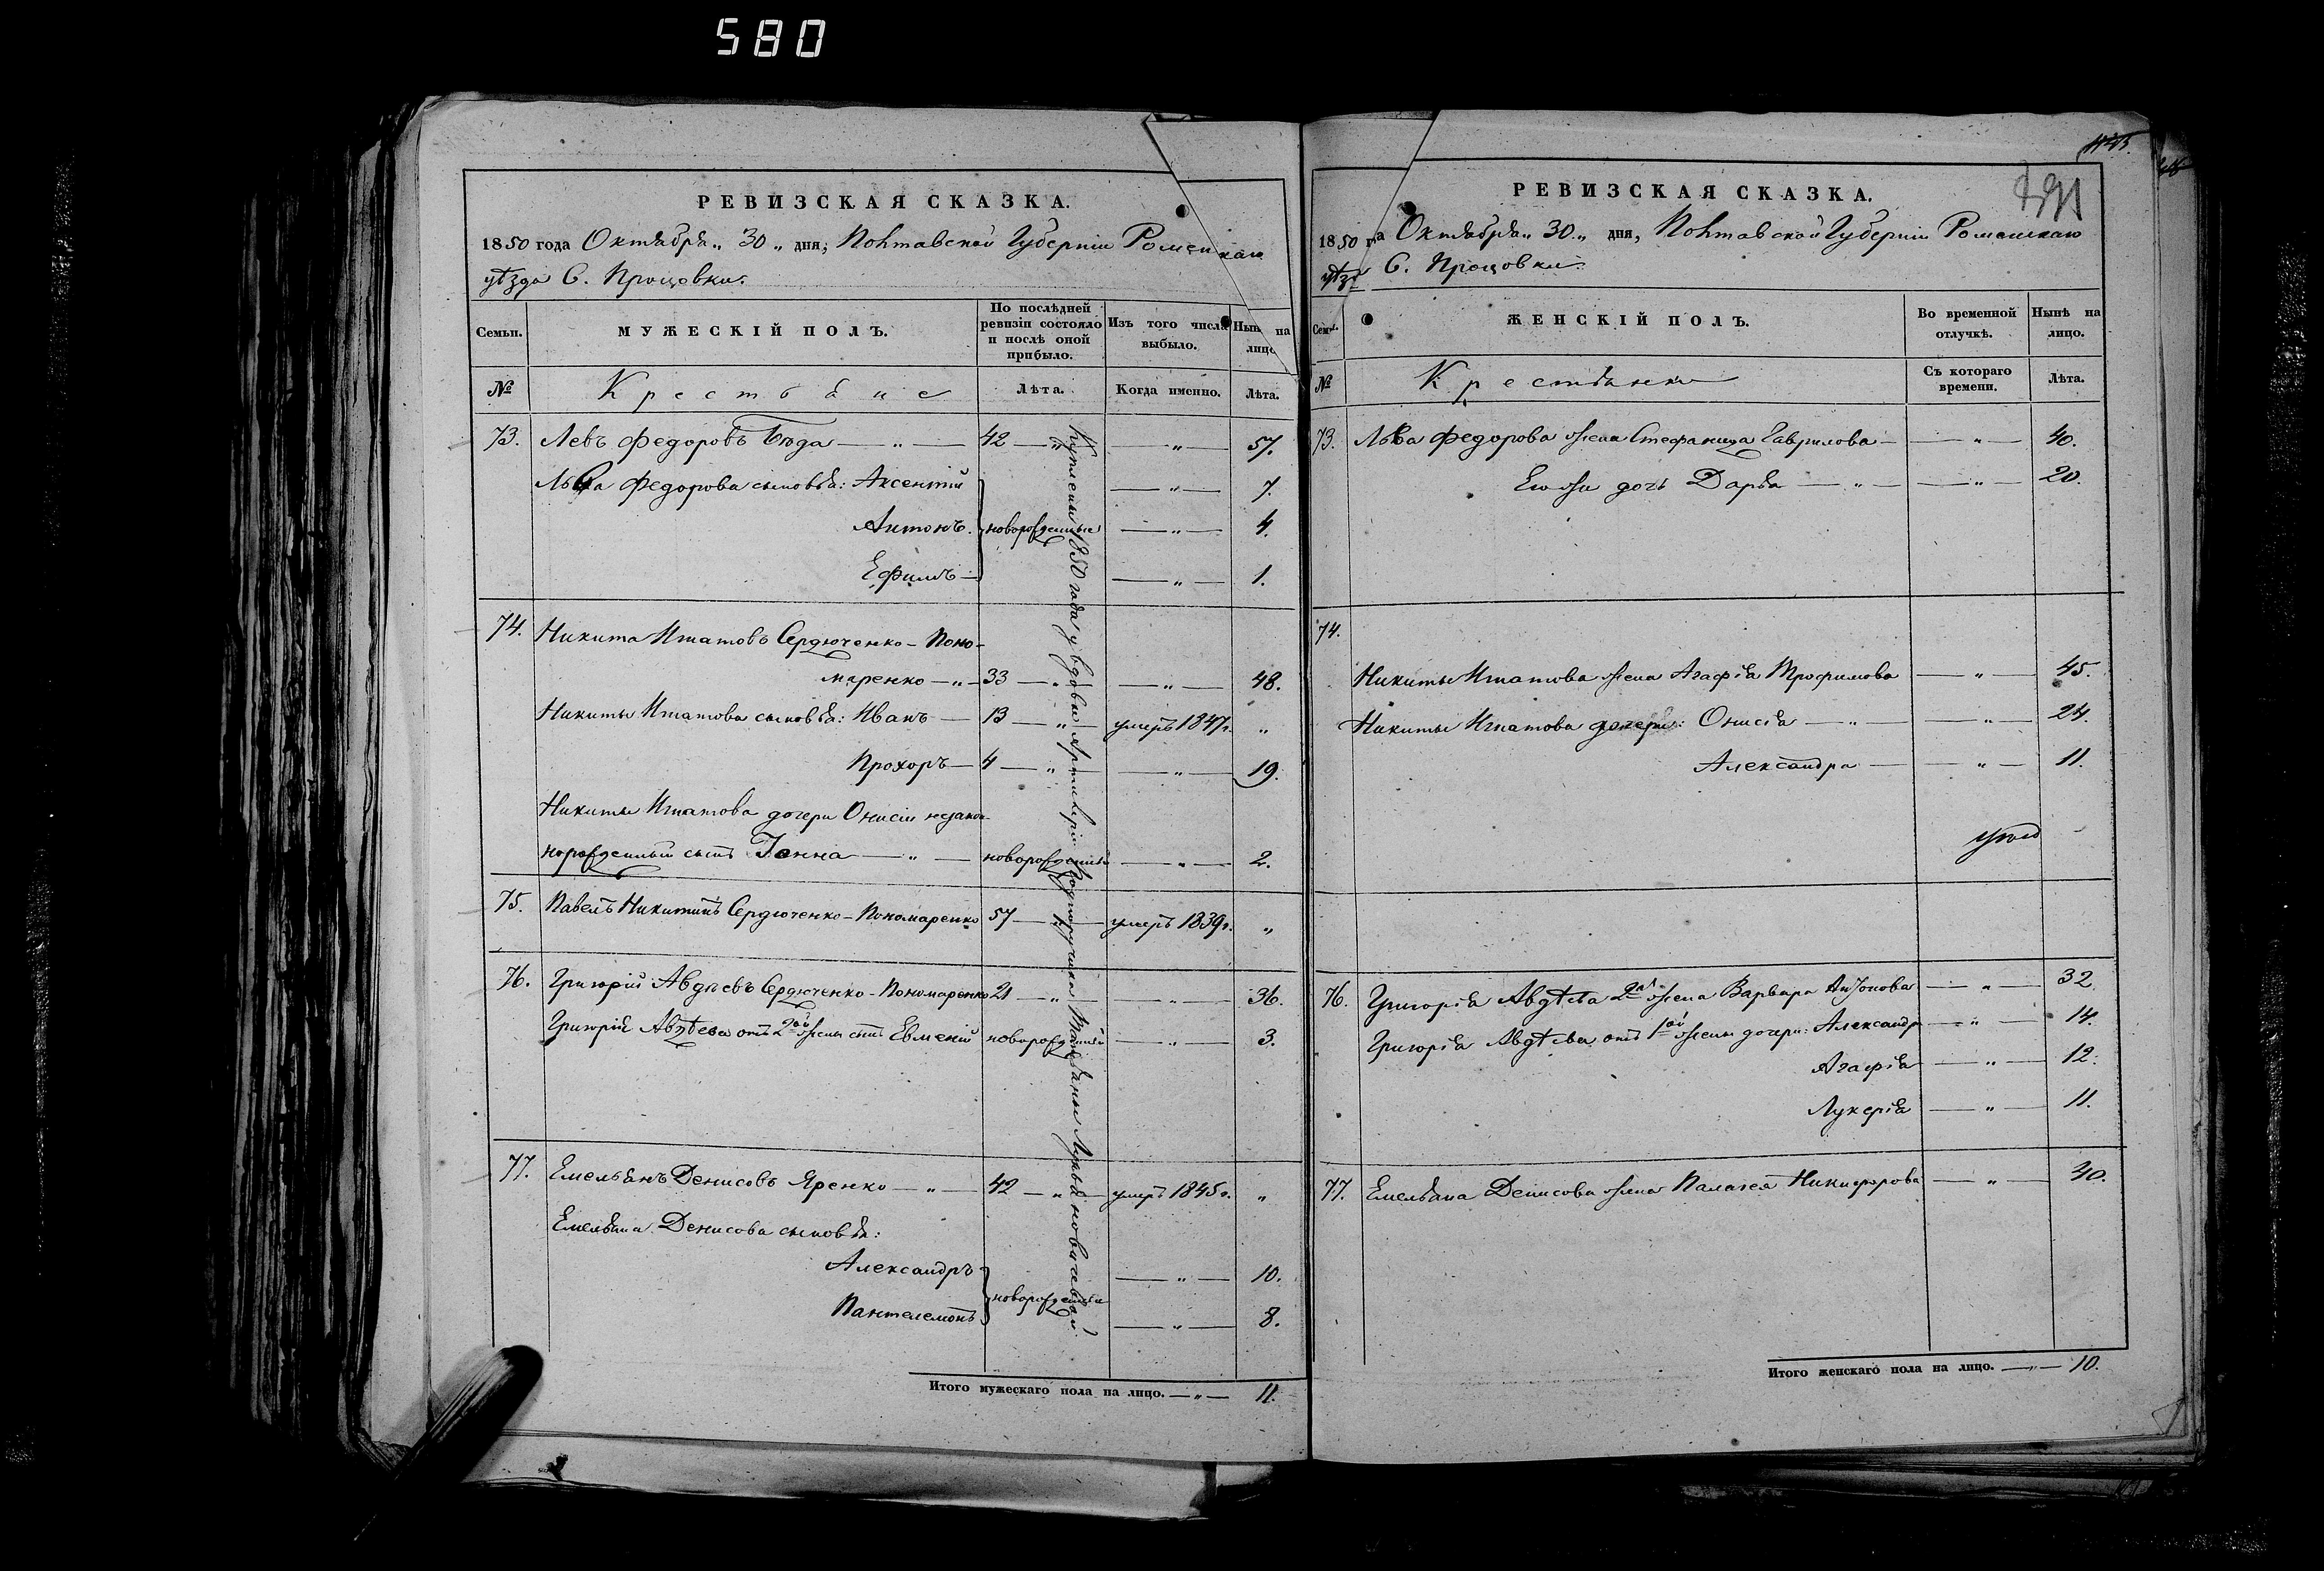 580
РЕВИЗСКАЯ СКАЗКА.
1850 года Октября „ 30 „ дня, Полтавской Губерніи Роменскаго
уѣзда С. Процовки.
Семьи.
МУЖЕСКІЙ ПОЛЪ.
По послѣдней ревизіи состояло и послѣ оной прибыло.
Изъ того числа выбыло.
Нынѣ на лицо.
№
Крестьяне
Лѣта.
Когда именно.
Лѣта.
73. Левъ Федоровъ Бѣда — „ — 42 — „ — — „ — 57.
Льва Федорова сыновья: Аксентій — „ — 7.
Антонъ. новорожденные — „ — 4.
Ефимъ — — „ — 1.
74. Никита Игнатовъ Сердюченко-Поно-
маренко — „ — 33 — „ — — „ — 48.
Никиты Игнатова сыновья: Иванъ — 13 — „ — умеръ 1847г. „
Прохоръ — 4 — „ — — „ — 19.
Никиты Игнатова дочери Онисіи незакон-
норожденный сынъ — „ — новорожденный — „ — 2.
75. Павелъ Никитинъ Сердюченко-Пономаренко 57 — „ — умеръ 1839г. „
76. Григорій Авдѣевъ Сердюченко-Пономаренко 21 — „ — — „ — 36.
Григорія Авдѣева отъ 2ой жены сынъ Евменій новорожденный — „ — 3.
77. Емельянъ Денисовъ Яренко — „ — 42 — „ — умеръ 1845г. „
Емельяна Денисова сыновья:
Александръ — „ — 10.
новорожденные
Пантелемонъ — „ — 8.
Куплены 1850 года у вдовы Артилеріи Подпоручика Татьяны Лукьяновичевой
Итого мужескаго пола на лицо. — „ — 11.
РЕВИЗСКАЯ СКАЗКА.
1850 г а Октября „ 30 „ дня, Полтавской Губерніи Роменскаго
уѣз С. Процовки.
Сем
ЖЕНСКІЙ ПОЛЪ.
Во временной отлучкѣ.
Нынѣ на лицо.
№
Крестьянки
Съ котораго времени.
Лѣта.
73. Льва Федорова жена Стефанида Гаврилова — — „ — 40.
Его же дочь Дарья — „ — — „ — 20.
74.
Никиты Игнатова жена Агафія Трофимова — „ — 45.
Никиты Игнатова дочери: Онисія — „ — — „ — 24.
Александра — — „ — 11.
76. Григорія Авдѣева 2ая жена Варвара Антонова — „ — 32.
Григорія Авдѣева отъ 1ой жены дочери: Александр — „ — 14.
Агафія — „ — 12.
Лукерія — „ — 11.
77. Емельяна Денисова жена Палагея Никифорова — „ — 40.
Итого женскаго пола на лицо. — „ — 10.